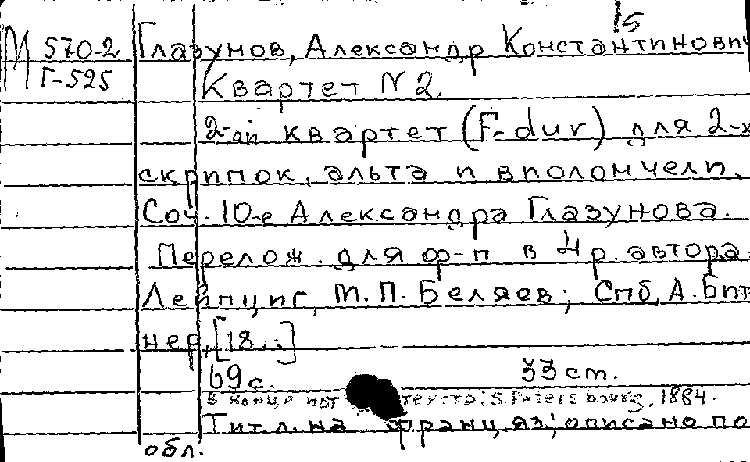 15
М 570-2 Глазунов, Александр Константинович
Г-525 Квартет N 2.
2-ой квартет (F-dur) для 2-х
скрипок, альта и виолончели.
Соч. 10-е Александра Глазунова.
Перелож. для ф-п в 4 р. автора
Лейпциг, М.П. Беляев; Спб, А. Бит
нер, [18..]
69 с. 33 ст.
В конце нот текста: S. Petersbourg, 1884.
Тит. л. на франц. яз; описано по
обл.